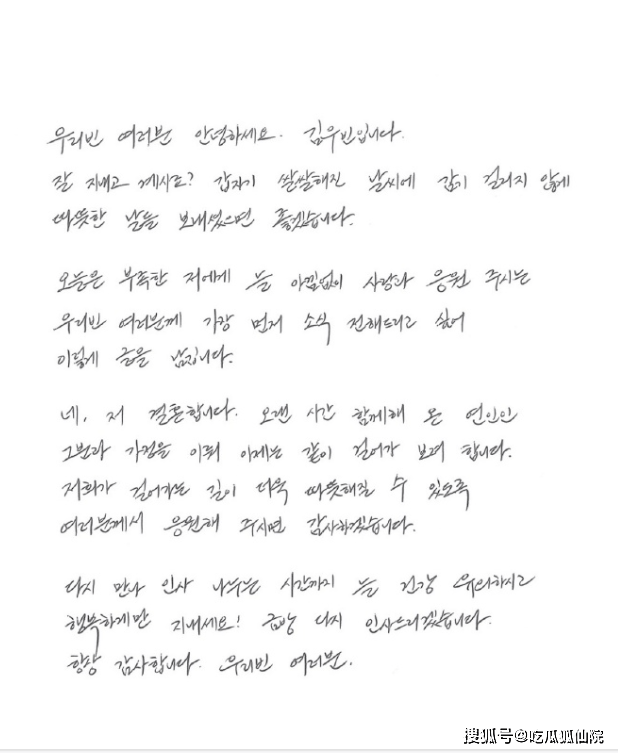 우리빈 여러분 안녕하세요. 김우빈입니다.
잘 지내고 계시죠? 갑자기 쌀쌀해진 날씨에 감기 걸리지 않게
따뜻한 날들 보내셨으면 좋겠습니다.
오늘은 부족한 저에게 늘 아낌없이 사랑과 응원 주시는
우리빈 여러분께 가장 먼저 소식 전해드리고 싶어
이렇게 글을 남깁니다.
네, 저 결혼합니다. 오랜 시간 함께해 온 연인인
그분과 가정을 이뤄 이제는 같이 걸어가 보려 합니다.
저희가 걸어가는 길이 더욱 따뜻해질 수 있도록
여러분께서 응원해 주시면 감사하겠습니다.
다시 만나 인사 나누는 시간까지 늘 건강 유의하시고
행복하게만 지내세요! 금방 다시 인사드리겠습니다.
항상 감사합니다. 우리빈 여러분.
搜狐号@吃瓜狐仙院